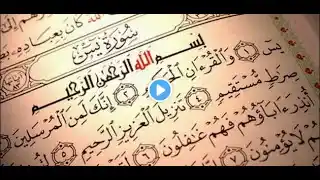 كان بعباده
سورة يس
بسم الله الرحمن الرحيم
يس ١ والقرءان الحكيم ٢ إنك لمن المرسلين
صرط مستقيم ٤ تنزيل العزيز الرحيم ٥
أنذر ءاباؤهم فهم غفلون ٦
لا يؤمنون ٧